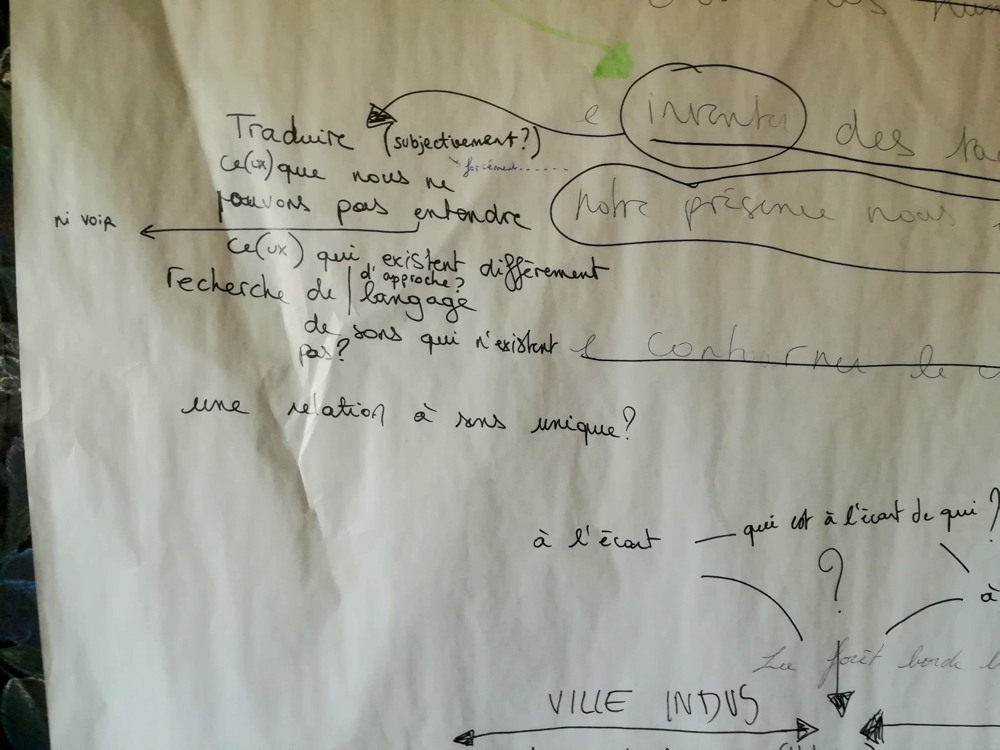 inventer des
Traduire (subjectivement?)
forcément......
ce(ux) que nous ne
pouvons pas entendre
notre présence nous
ni voir
ce(ux) qui existent différement
d'approche?
recherche de | langage
de sons qui n'existent
pas?
contourner le
une relation à sens unique?
à l'écart — qui est à l'écart de qui ?
?
à
La forêt borde
VILLE INDUS